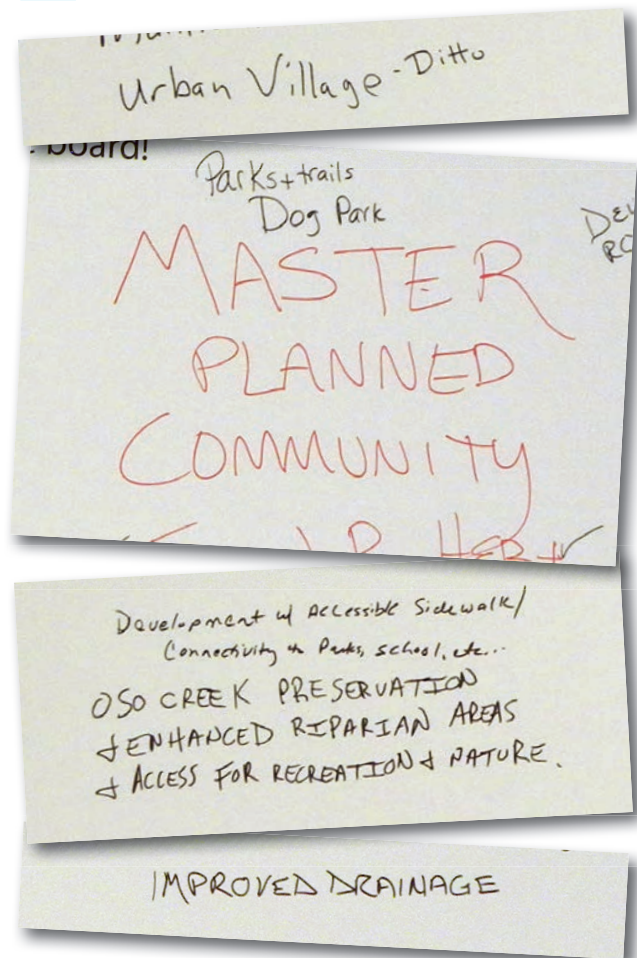 Urban Village - Ditto
board!
Parks + trails
Dog Park
MASTER
PLANNED
COMMUNITY
Development w/ Accessible Sidewalk/
Connectivity to Parks, school, etc...
OSO CREEK PRESERVATION
& ENHANCED RIPARIAN AREAS
& ACCESS FOR RECREATION & NATURE.
IMPROVED DRAINAGE